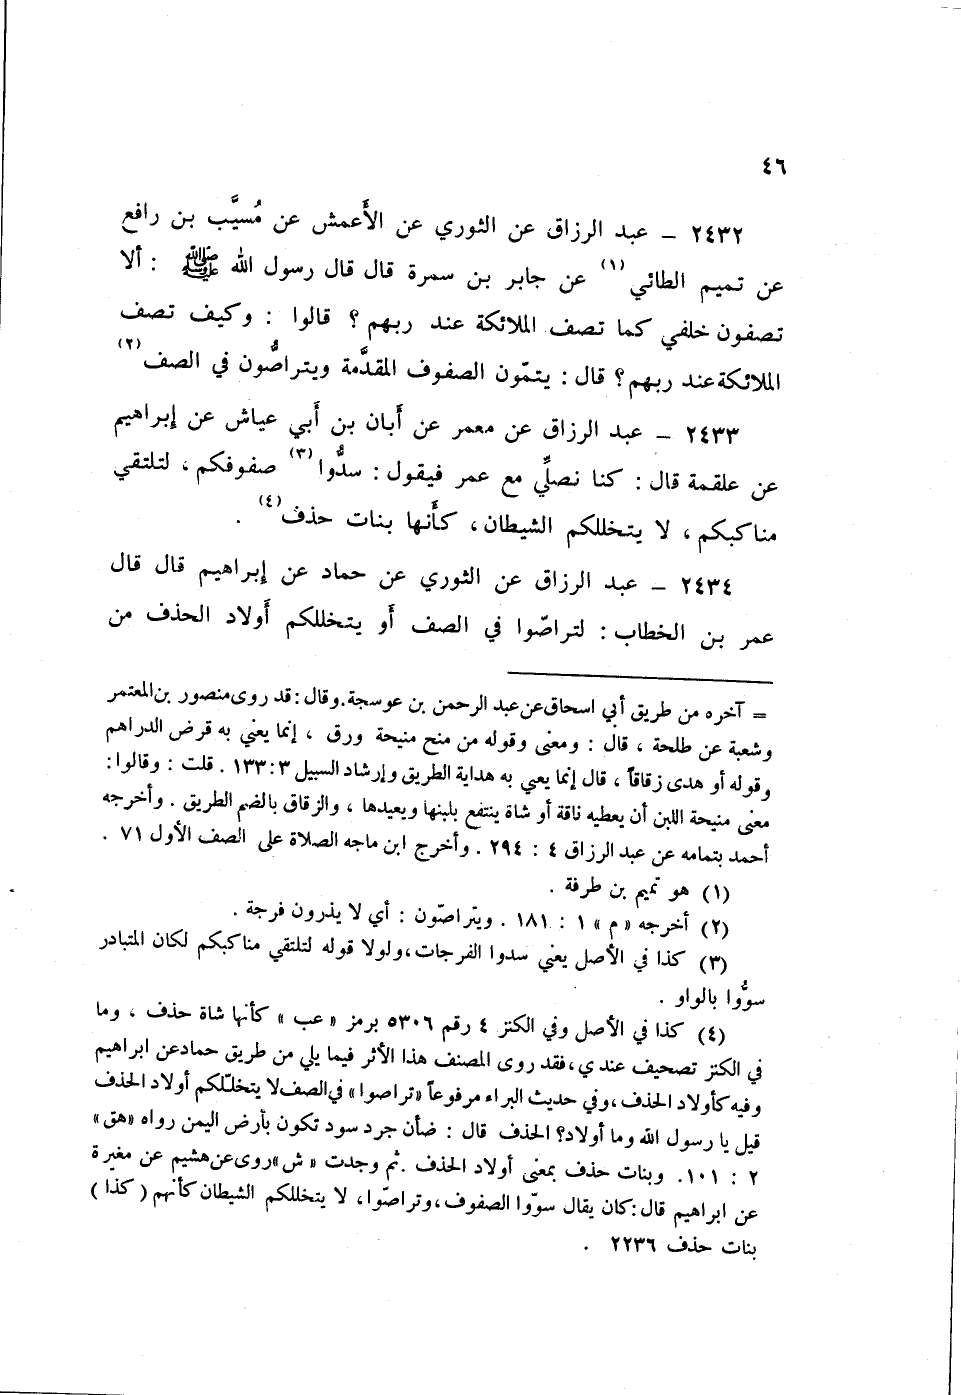 ٤٦
٢٤٣٢ – عبد الرزاق عن الثوري عن الأَعمش عن مُسيَّب بن رافع
عن تميم الطائي (١) عن جابر بن سمرة قال قال رسول الله ﷺ : ألا
تصفون خلفي كما تصف الملائكة عند ربهم ؟ قالوا : وكيف تصف
الملائكة عند ربهم ؟ قال : يتمّون الصفوف المقدَّمة ويتراصُّون في الصف (٢)
٢٤٣٣ – عبد الرزاق عن معمر عن أَبان بن أَبي عياش عن إبراهيم
عن علقمة قال : كنا نصلِّي مع عمر فيقول : سدُّوا (٣) صفوفكم ، لتلتقي
مناكبكم ، لا يتخللكم الشيطان ، كأَنها بنات حذف (٤) .
٢٤٣٤ – عبد الرزاق عن الثوري عن حماد عن إبراهيم قال قال
عمر بن الخطاب : لتراصّوا في الصف أَو يتخللكم أَولاد الحذف من
= آخره من طريق أبي اسحاق عن عبد الرحمن بن عوسجة . وقال : قد روى منصور بن المعتمر
وشعبة عن طلحة ، قال : ومعنى وقوله من منح منيحة ورق ، إنما يعني به قرض الدراهم
وقوله أو هدى زقاقاً ، قال إنما يعي به هداية الطريق وإرشاد السبيل ٣ : ١٣٣ . قلت : وقالوا :
معنى منيحة اللبن أن يعطيه ناقة أو شاة ينتفع بلبنها ويعيدها ، والزقاق بالضم الطريق . وأخرجه
أحمد بتمامه عن عبد الرزاق ٤ : ٢٩٤ . وأخرج ابن ماجه الصلاة على الصف الأول ٧١ .
(١) هو تميم بن طرفة .
(٢) أخرجه « م » ١ : ١٨١ . ويتراصّون : أي لا يذرون فرجة .
(٣) كذا في الأصل يعني سدوا الفرجات ، ولولا قوله لتلتقي مناكبكم لكان المتبادر
سوُّوا بالواو .
(٤) كذا في الأصل وفي الكنز ٤ رقم ٥٣٠٦ برمز « عب » كأنها شاة حذف ، وما
في الكنز تصحيف عندي ، فقد روى المصنف هذا الأثر فيما يلي من طريق حماد عن ابراهيم
وفيه كأولاد الحذف ، وفي حديث البراء مرفوعاً « تراصوا » في الصف لا يتخلّلكم أولاد الحذف
قيل يا رسول الله وما أولاد؟ الحذف قال : ضأن جرد سود تكون بأرض اليمن رواه « هق »
٢ : ١٠١ . وبنات حذف بمعنى أولاد الحذف . ثم وجدت « ش » روى عن هشيم عن مغيرة
عن ابراهيم قال : كان يقال سوّوا الصفوف ، وتراصّوا ، لا يتخللكم الشيطان كأنهم ( كذا )
بنات حذف ٢٢٣٦ .